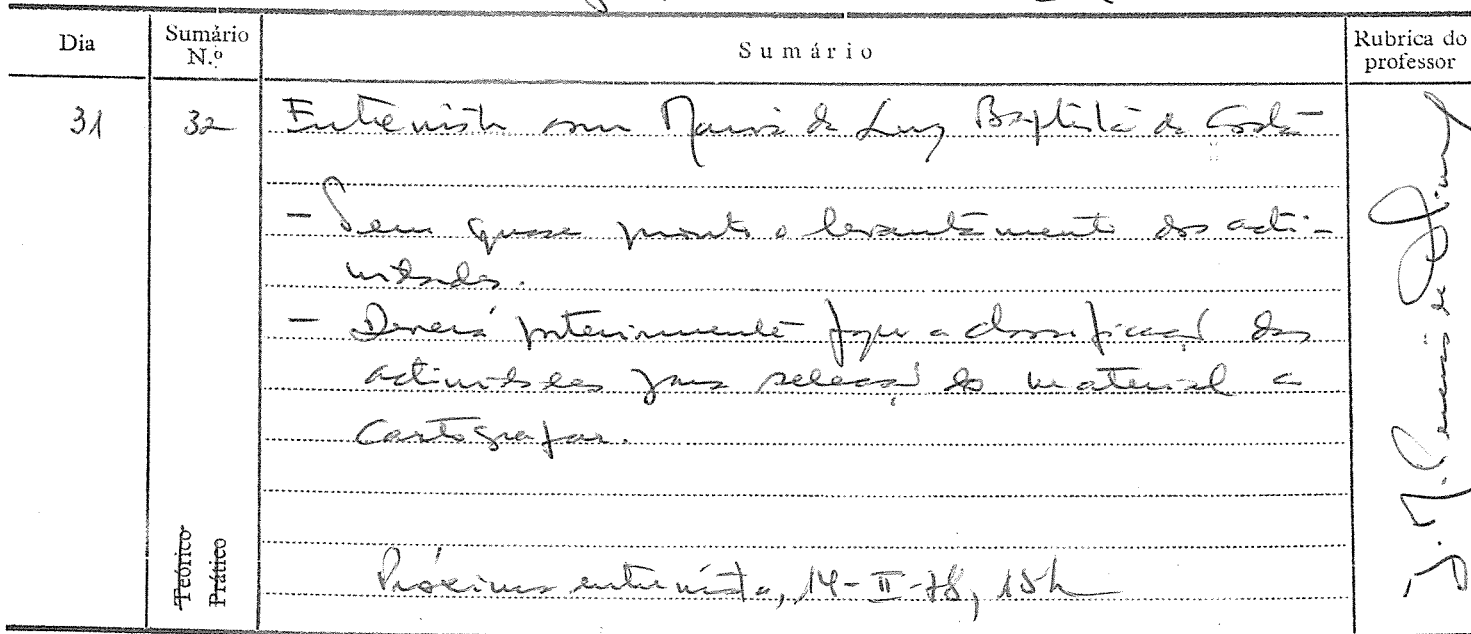 Dia
Sumário N.º
Sumário
Rubrica do professor
31
32
Entrevista com Maria da Luz Baptista da Costa
- Tem quase pronto o levantamento das acti-
vidades.
- Deverá posteriormente fazer a classificação das
actividades para selecção do material a
Cartografar.
Teórico
Prático
Próxima entrevista, 14-II-78, 15h